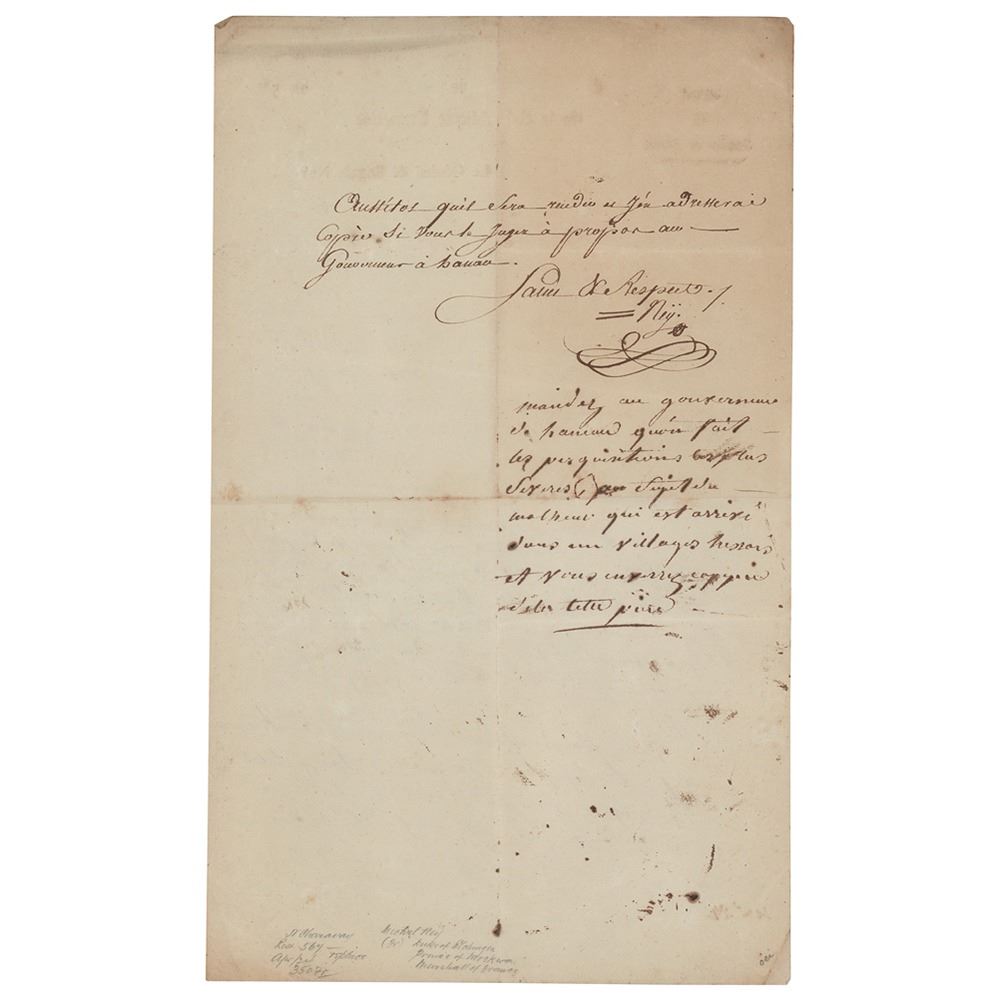 Aussitôt qu'il sera rendu et j'en adresserai
Copie si vous le jugez à propos au
Gouverneur à hanau.
Salut & Respect.
Ney.
mandez au gouverneur
de hanau qu'on fait
les perquisitions les plus
severes au sujet du
malheur qui est arrivé
dans un villages hessois
et vous enverrez coppie
de la lettre
Rec 569 —
Michel Ney
Duke of Elchingen
Prince of Moskwa
Marshall of France
35075